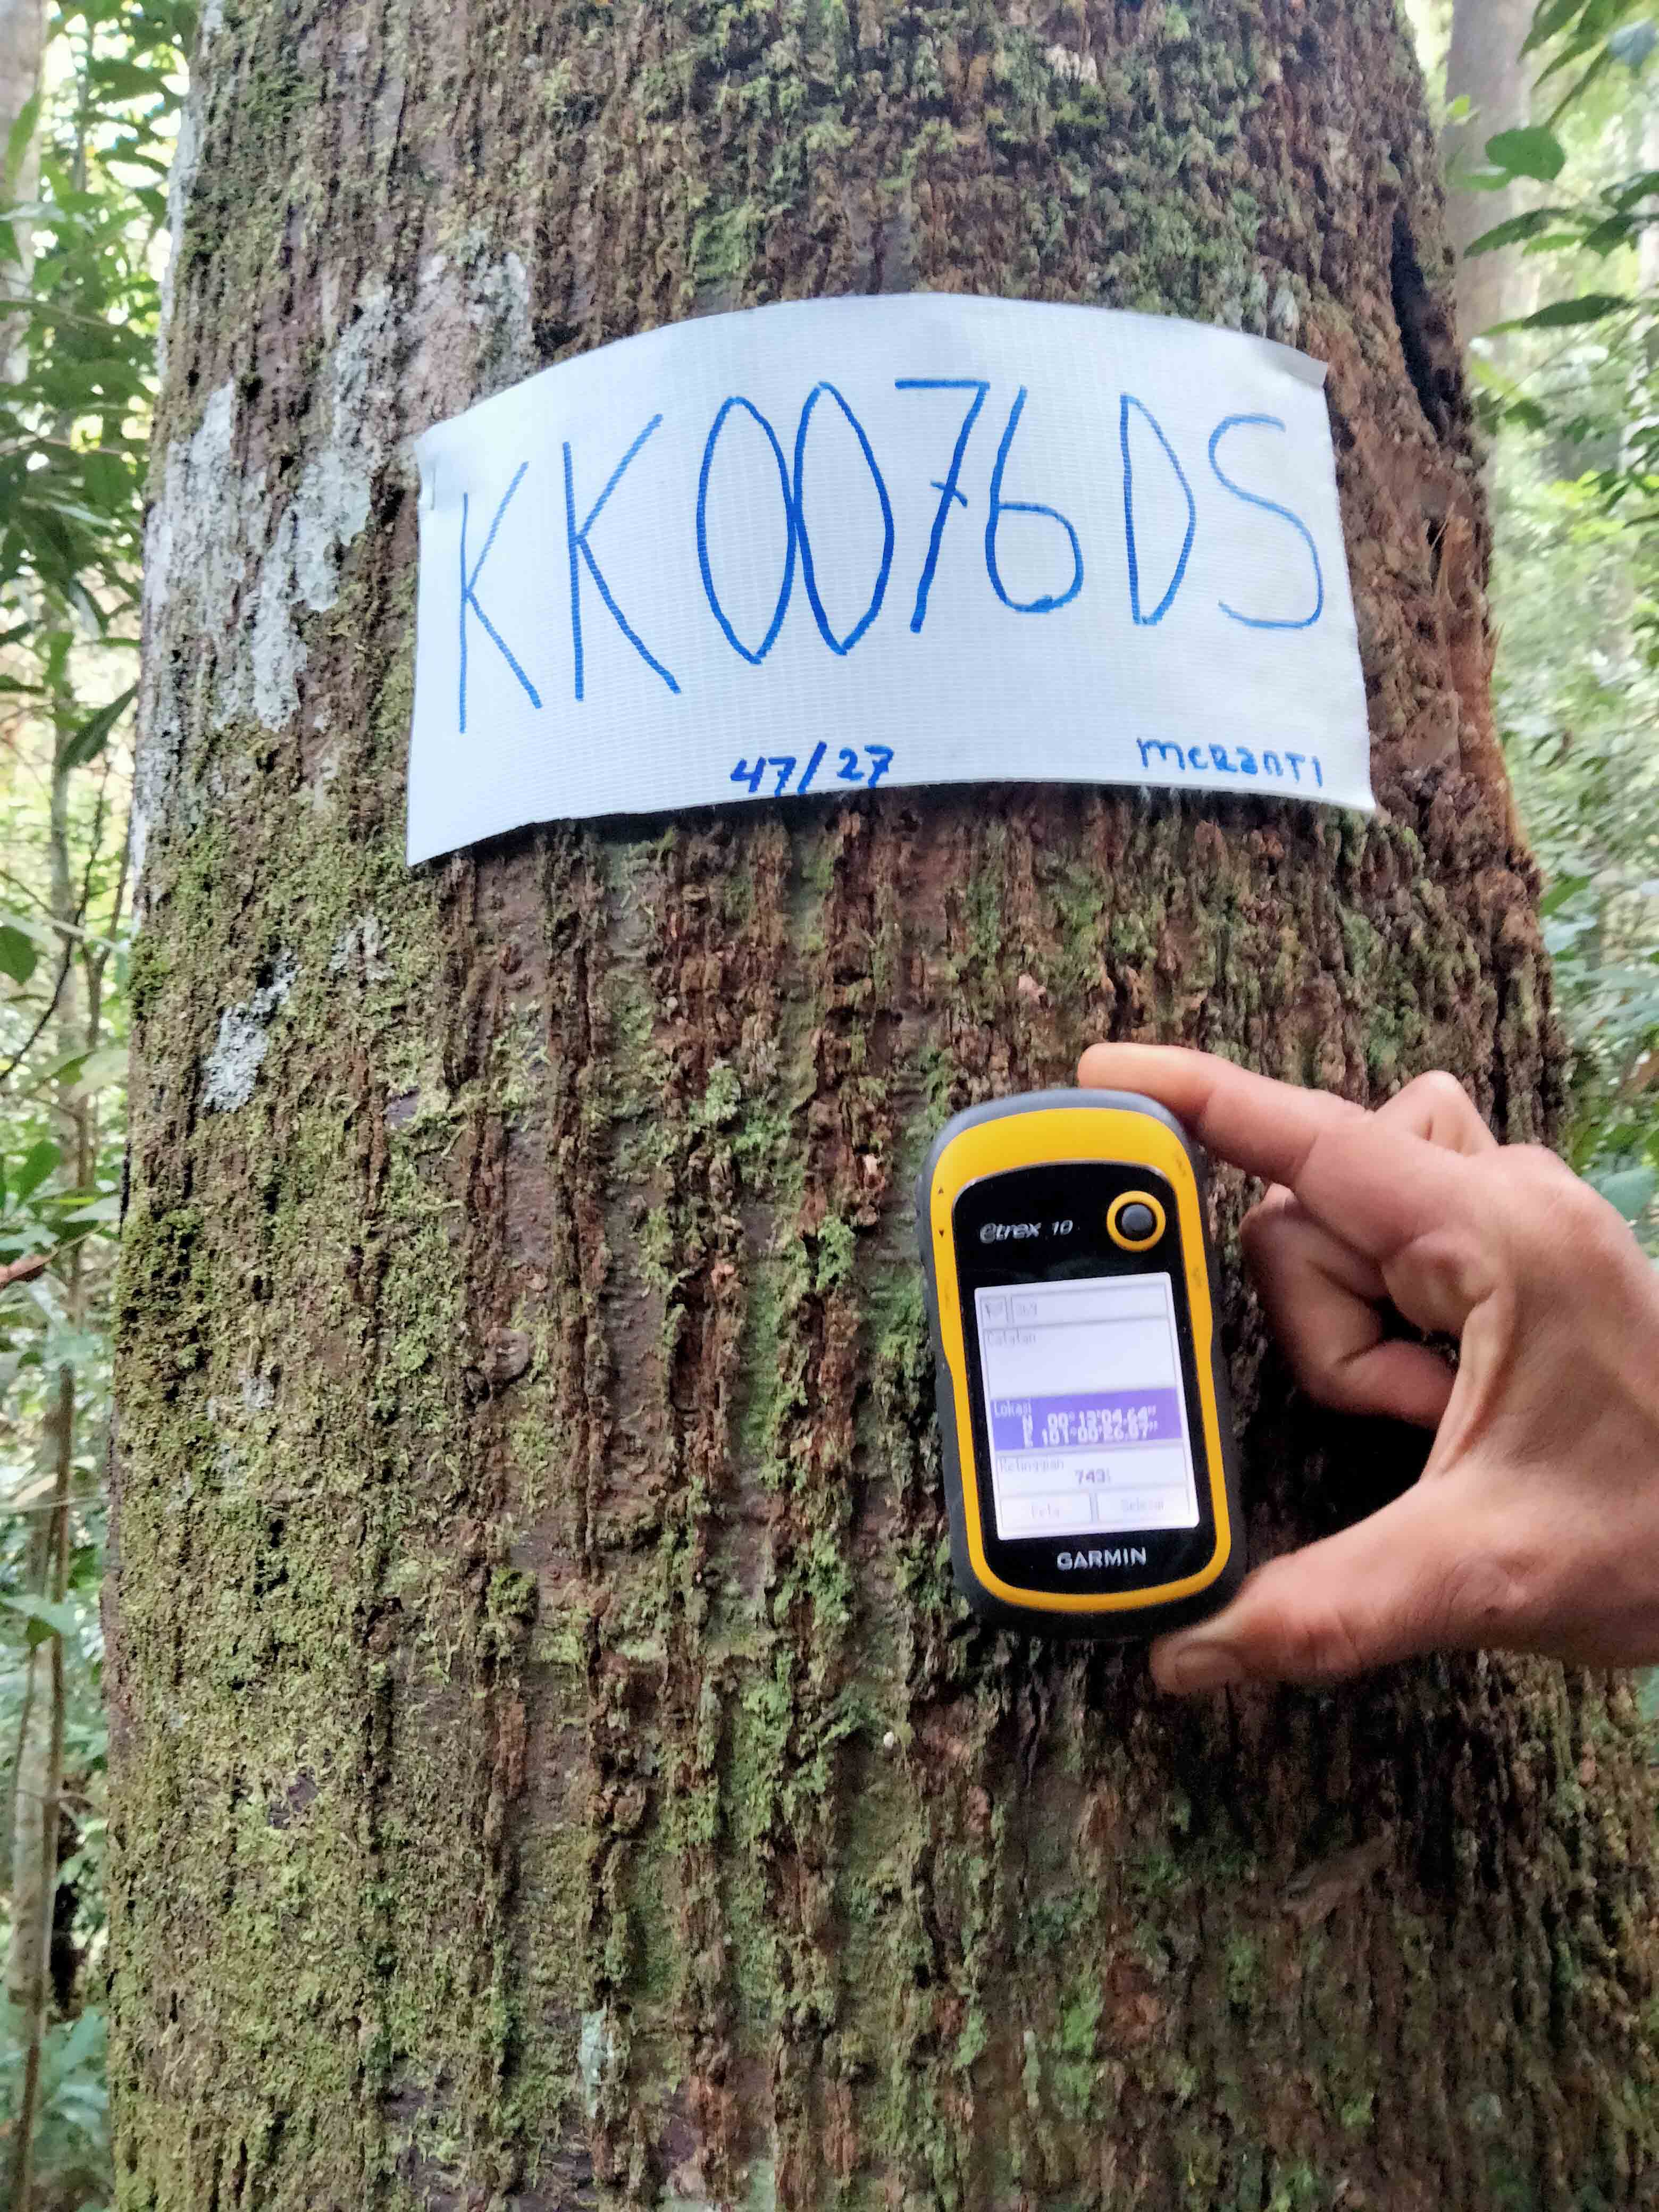 KK0076DS
47/27 MCRANTI
etrex 10
Catatan
Lokasi
N 00°13'04.64"
E 101°00'26.87"
Ketinggian
Peta Selesai
GARMIN